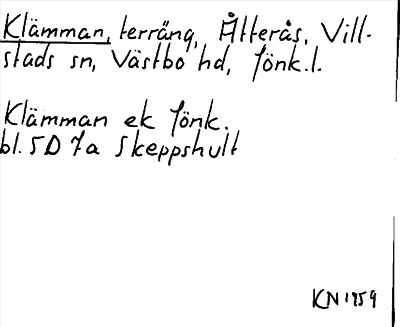 Klämman, terräng, Åtterås, Vill-
stads sn, Västbo hd, Jönk.l.
Klämman ek Jönk.
bl. 5D 7a Skeppshult
KN 1959